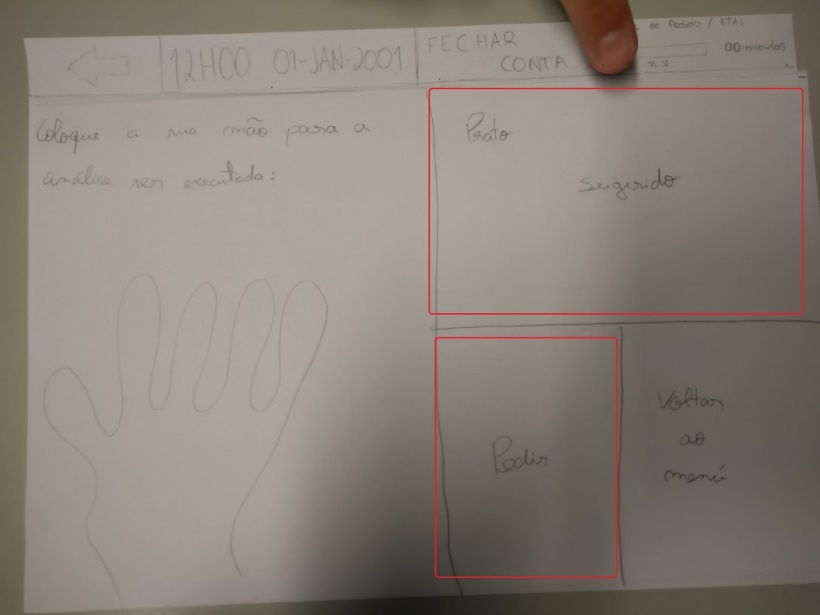 12H00 01-JAN-2001
FECHAR
CONTA
do Pedido / ETA:
00 minutos
Coloque a sua mão para a
análise ser executada:
Prato
Sugerido
Pedir
Voltar
ao
menú